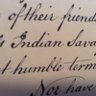 of their friend
Indian Sava
t humble term
Nor have